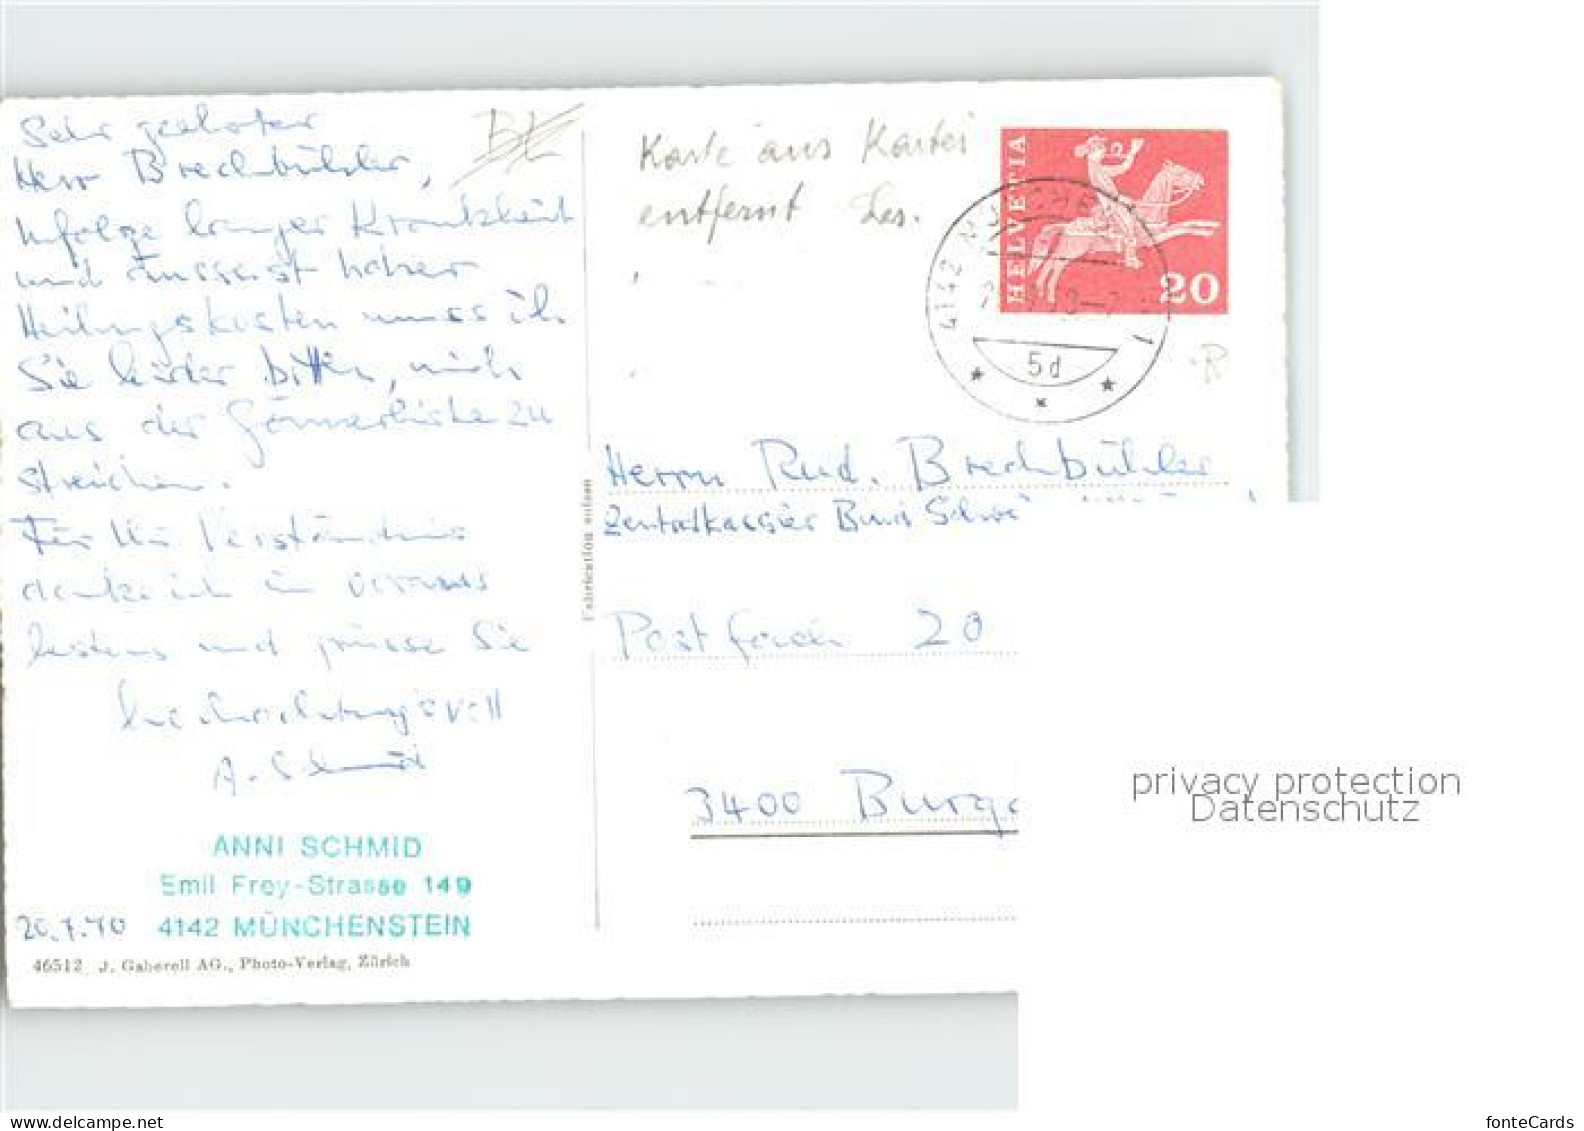 Sehr geehrter
Herr Brechbühler,
Infolge langer Krankheit
und äusserst hoher
Heilungskosten muss ich
Sie leider bitten, mich
aus der Gönnerliste zu
streichen.
Für Ihr Verständnis
danke ich im voraus
bestens und grüsse Sie
hochachtungsvoll
A. Schmid
ANNI SCHMID
Emil Frey-Strasse 149
20.7.70 4142 MÜNCHENSTEIN
46512 J. Gaberell AG., Photo-Verlag, Zürich
BL
Fabrication suisse
Karte aus Kartei
entfernt Les.
HELVETIA
20
4142 MÜNCHEN
5d
1
R
Herrn Rud. Brechbühler
Zentralkassier Bund Schw
Postfach 20
3400 Burgd
privacy protection
Datenschutz
www.delcampe.net
fonteCards